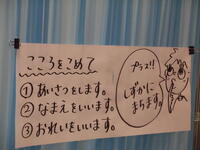 こころをこめて
①あいさつをします。
②なまえをいいます。
③おれいをいいます。
プラス!!
しずかに
まちます。